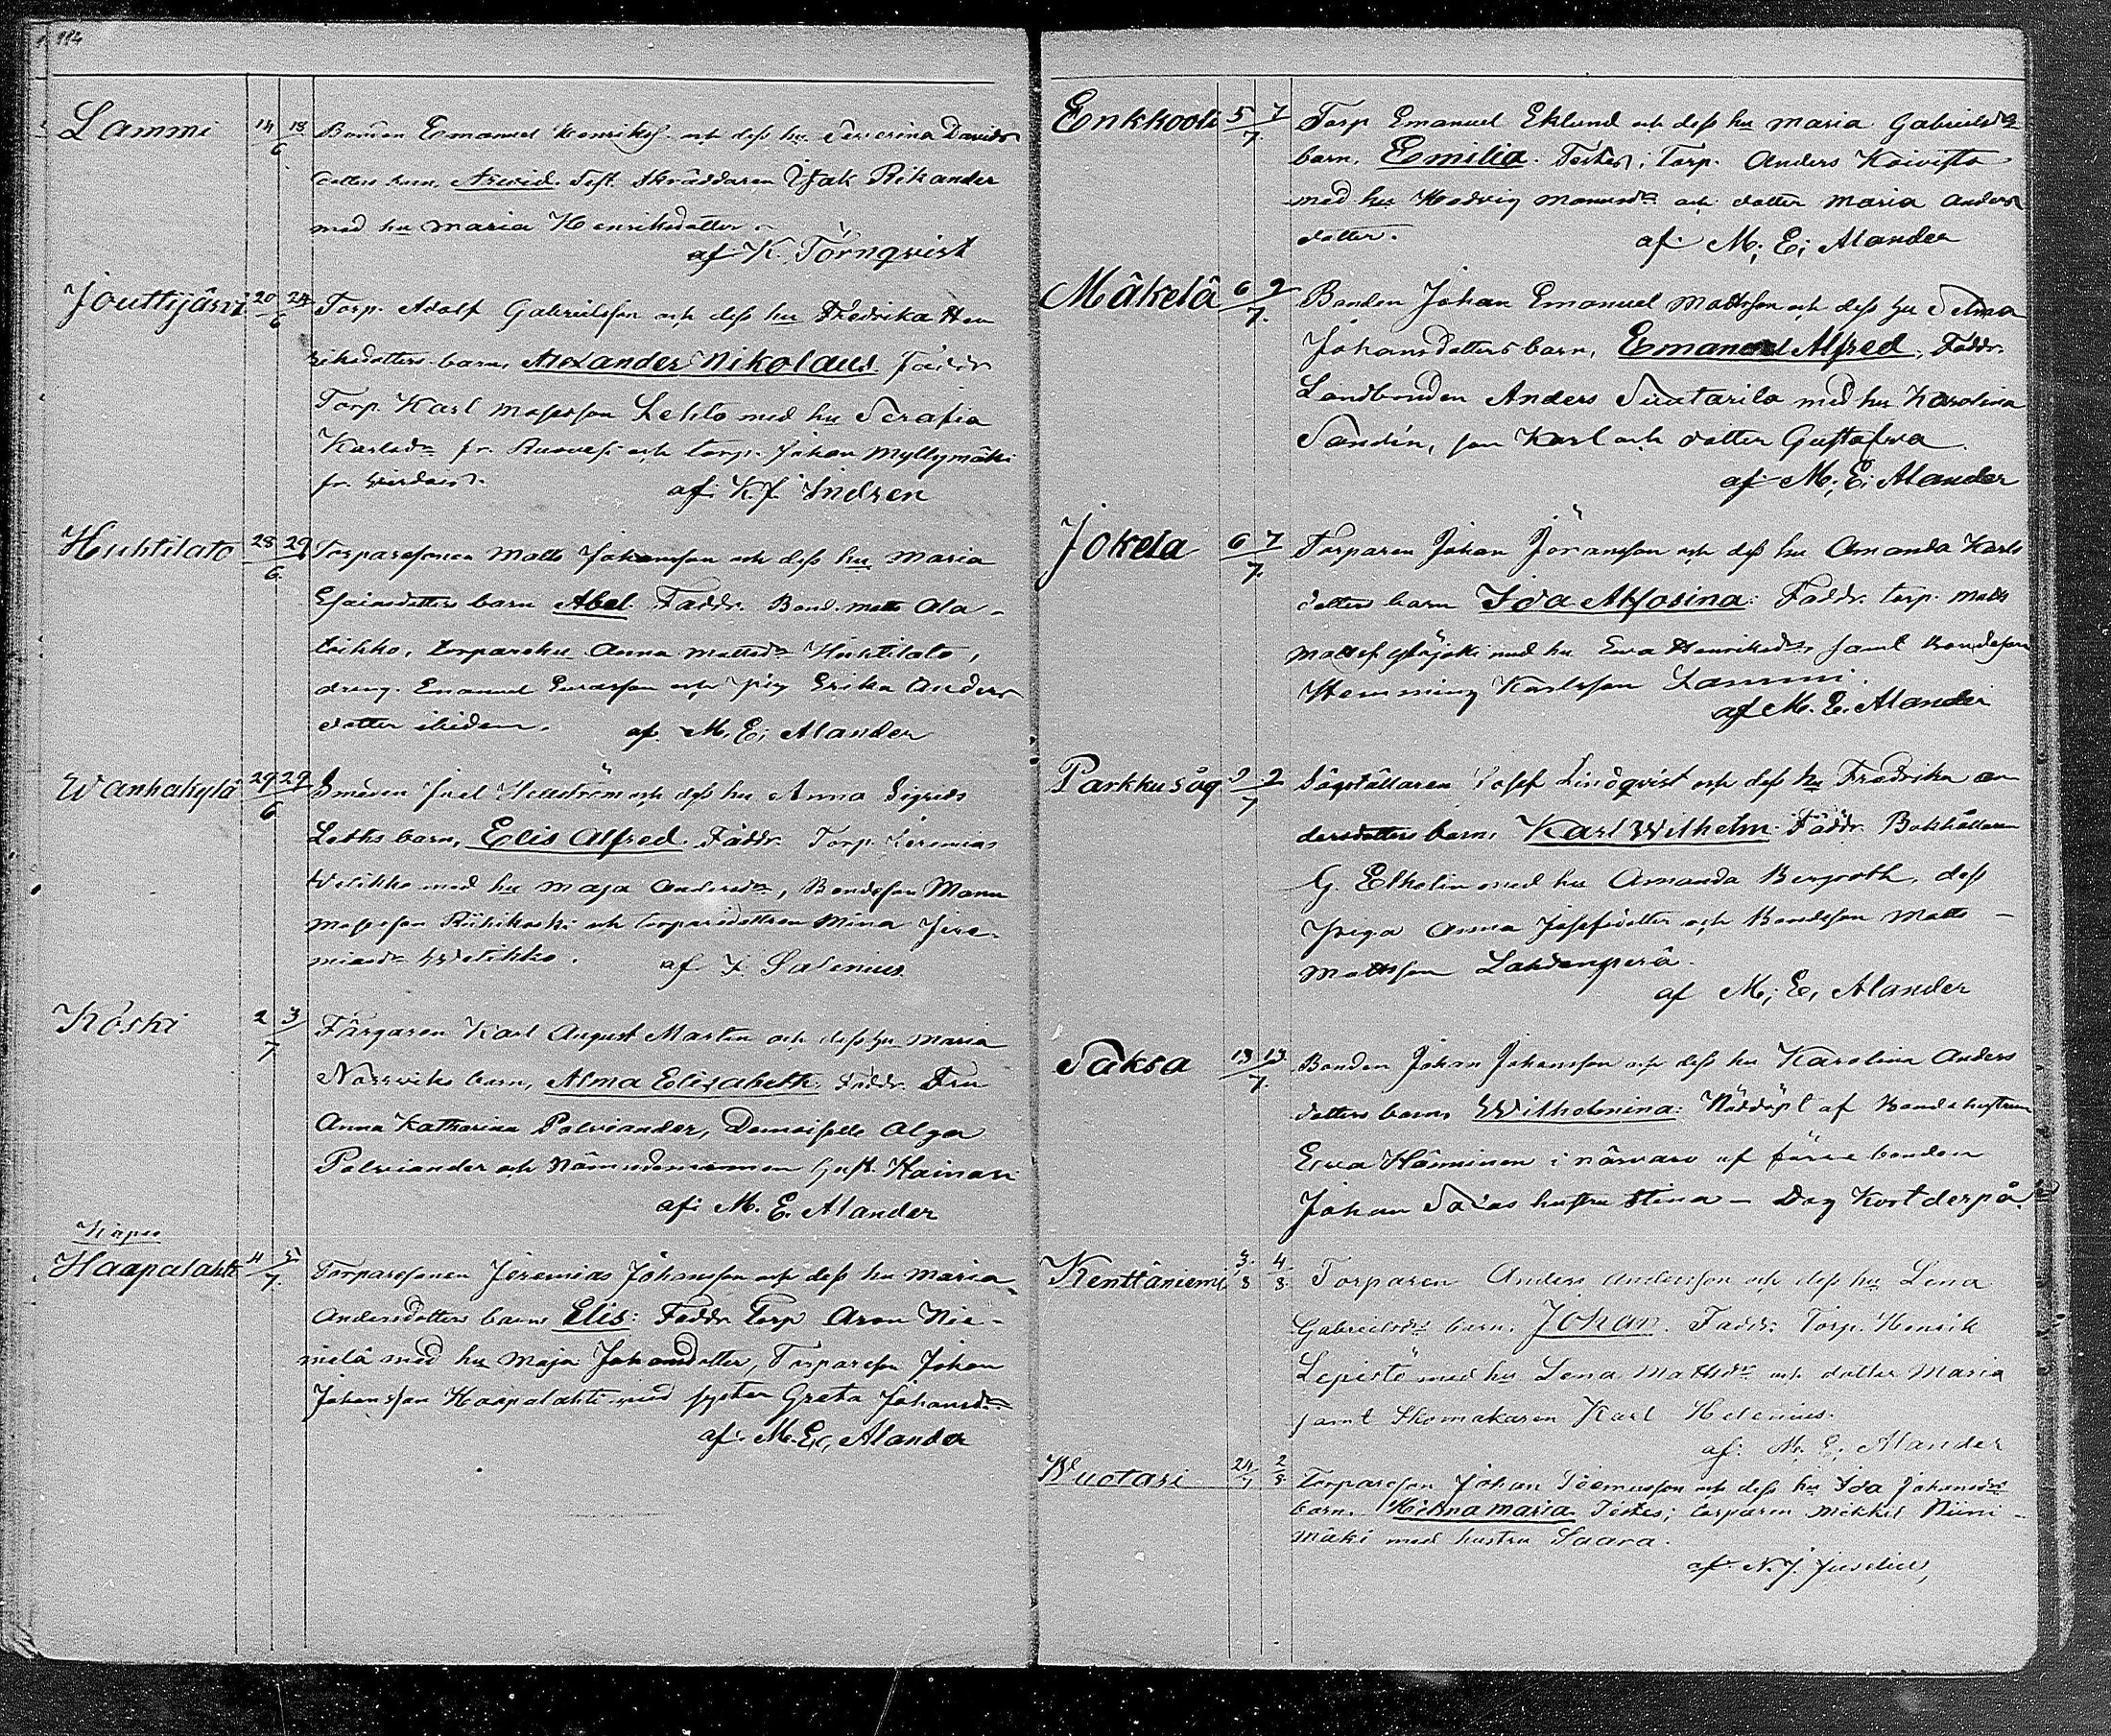 114
Lammi 14 15/6 Bonden Emanuel Henrikss. och dess hu Severina Davids
dotters barn, Arvid. Test. Skräddaren Isak Rikander
med hu Maria Henriksdotter.
af K. Törnqvist
Jouttijärvi 20 24/6 Torp. Adolf Gabrielsson och dess hu Fredrika Hen
riksdotters barn, Alexander Nikolaus. Faddr
Torp. Karl Mosesson Lehto med hu Serafia
Karlsdr fr. Ruovesi och torp. Johan Myllymäki
fr. Virdois.
af K. J. Indren
Huhtilato 28 29/6 Torparesonen Matts Johansson och dess hu Maria
Esaiasdotters barn Abel. Faddr. Bond. Matts Ala-
torparehu Anna Mattsdr Huhtilato,
dreng. Emanuel och pig Erika Anders
dotter ibidem.
af M. E. Alander
Wanhakylä 29 29/6 Smeden Joel Hellström och dess hu Anna Sigrids
Leths barn, Elis Alfred. Faddr. Torp. Jeremias
Welikko med hu Maja Andersdr, Bondeson Mann
Mosesson Riihikoski och torparedottren Mina Jere-
miasdr Welikko.
af F. Salenius
Koski 2 3/7 Färgaren Karl August Martin och dess hu Maria
barn, Alma Elisabeth. Faddr. Fru
Anna Katharina Palviander, Demoiselle Olga
Palviander och Nämndemannen Gust. Kainari
af M. E. Alander
Haapalahti 4 5/7 Torparesonen Jeremias Johansson och dess hu Maria
Andersdotters barn Elis: Faddr Torp Aron Nie-
melä med hu Maja Johansdotter, Torpareson Johan
Johansson Haapalahti med syster Greta Johansdr
af M. E. Alander
Enkkooli 5 7/7 Torp Emanuel Eklund och dess hu Maria Gabrielsdr
barn, Emilia. Testes; Torp. Anders Koivisto
med hu Hedvig Manuesdr och dotter Maria Anders
dotter.
af M. E. Alander
Mäkelä 6 9/7 Bonden Johan Emanuel Mattsson och dess hu Selma
Johansdotters barn, Emanuel Alfred. Faddr.
Landbonden Anders Suutarila med hu Karolina
Sandin, son Karl och dotter Gustafva
af M. E. Alander
Jokela 6 7/7 Torparen Johan Jöransson och dess hu Amanda Karls
dotters barn Ida Alfosina: Faddr. torp. Matts
Mattss Ylijoki med hu Eva Henriksdr, samt Bondeson
Hemming Karlsson Lammi.
af M. E. Alander
Parkku såg 2 2/7 Sågställaren Josef Lindqvist och dess hu Fredrika An
dersdotters barn, Karl Wilhelm. Faddr. Bokhållaren
G. Elholin med hu Amanda Bergroth, dess
piga Anna Josefsdotter och Bondeson Matts
Mattsson Lahdenperä.
af M. E. Alander
Saksa 13 13/7 Bonden Johan Johansson och dess hu Karolina Anders
dotters barn, Wilhelmina: Nöddöpt af Bondehustrun
Eva Hänninen i närvaro af förre bonden
Johan hustru Stina – Dog kort derpå.
Kenttäniemi 3/8 4/8 Torparen Anders Andersson och dess hu Lena
Gabrielsdrs barn, Johan. Faddr: Torp. Henrik
Lepistö med hu Lena Mattsdr och dotter Maria
samt Skomakaren Karl Helenius.
af M. E. Alander
Wuotari 24/7 2/8 Torpareson Johan Joemusson och dess hu Ida Johansdrs
barn. Hilma Maria. Testes; torparen Mikkel Niini-
mäki med hustru Saara.
af N. J. Juselius,